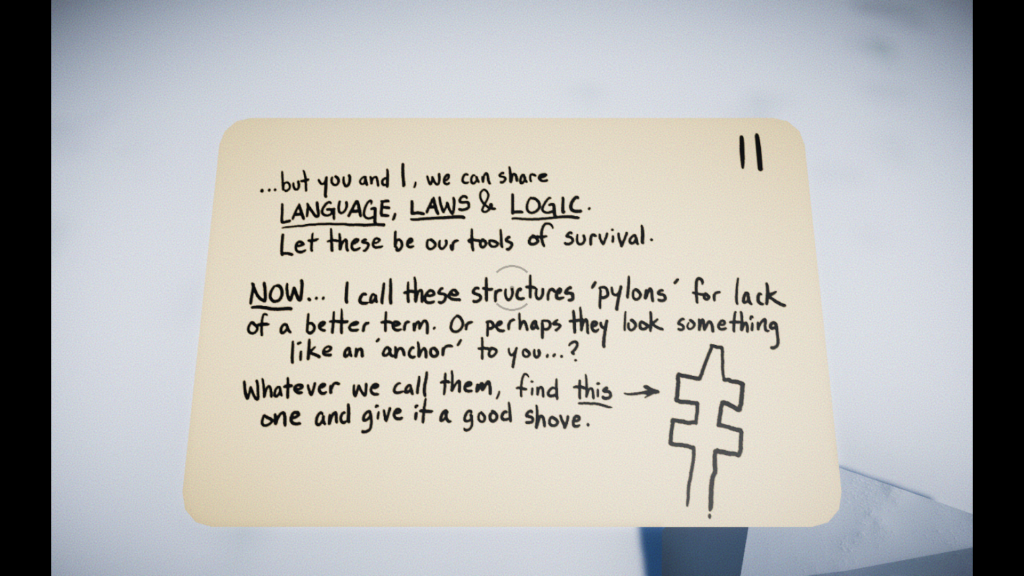 11
...but you and I, we can share
LANGUAGE, LAWS & LOGIC.
Let these be our tools of survival.
NOW... I call these structures 'pylons' for lack
of a better term. Or perhaps they look something
like an 'anchor' to you...?
Whatever we call them, find this →
one and give it a good shove.